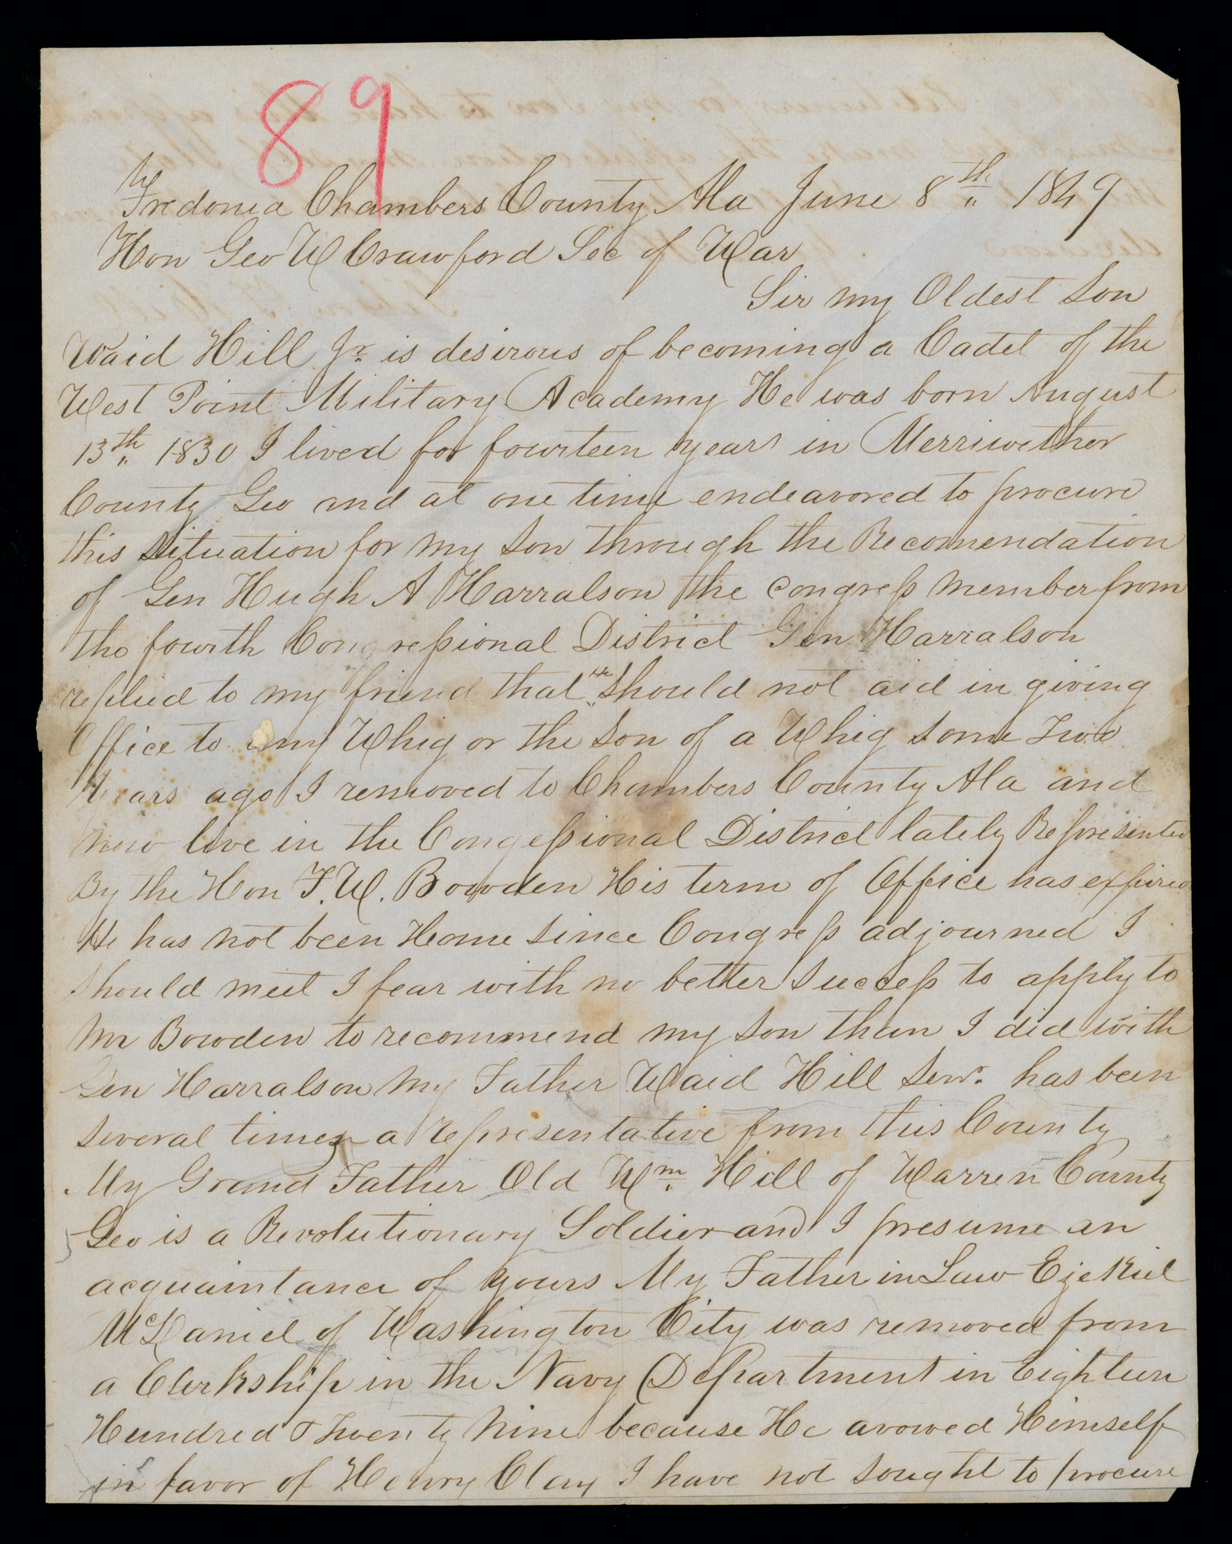 89
Fredonia Chambers County Ala June 8th 1849
Hon Geo W Crawford Sec of War
Sir my Oldest Son
Waid Hill Jr. is desirous of becoming a Cadet of the
West Point Military Academy He was born August
13th 1830 I lived for fourteen years in Merriwether
County Geo and at one time endeavored to procure
this Situation for my Son through the Recomendation
of Gen Hugh A Harralson the Congress member from
the fourth Congressional District Gen Harralson
replied to my friend that he Should not aid in giving
Office to any Whig or the Son of a Whig Some Two
Years ago I removed to Chambers County Ala and
now live in the Congessional District lately Represented
By the Hon F.W. Bowden His term of Office has expired
He has not been Home Since Congress adjourned I
Should meet I fear with no better Success to apply to
Mr Bowden to recommend my Son than I did with
Gen Harralson My Father Waid Hill Senr. has been
Several times a representative from this County
My Grand Father Old Wm. Hill of Warren County
Geo is a Revolutionary Soldier and I presume an
acquaintance of yours My Father in Law Ezekiel
McDaniel of Washington City was removed from
a Clerkship in the Navy Department in Eighteen
Hundred Twenty Nine because He avowed Himself
in favor of Henry Clay I have not Sought to procure